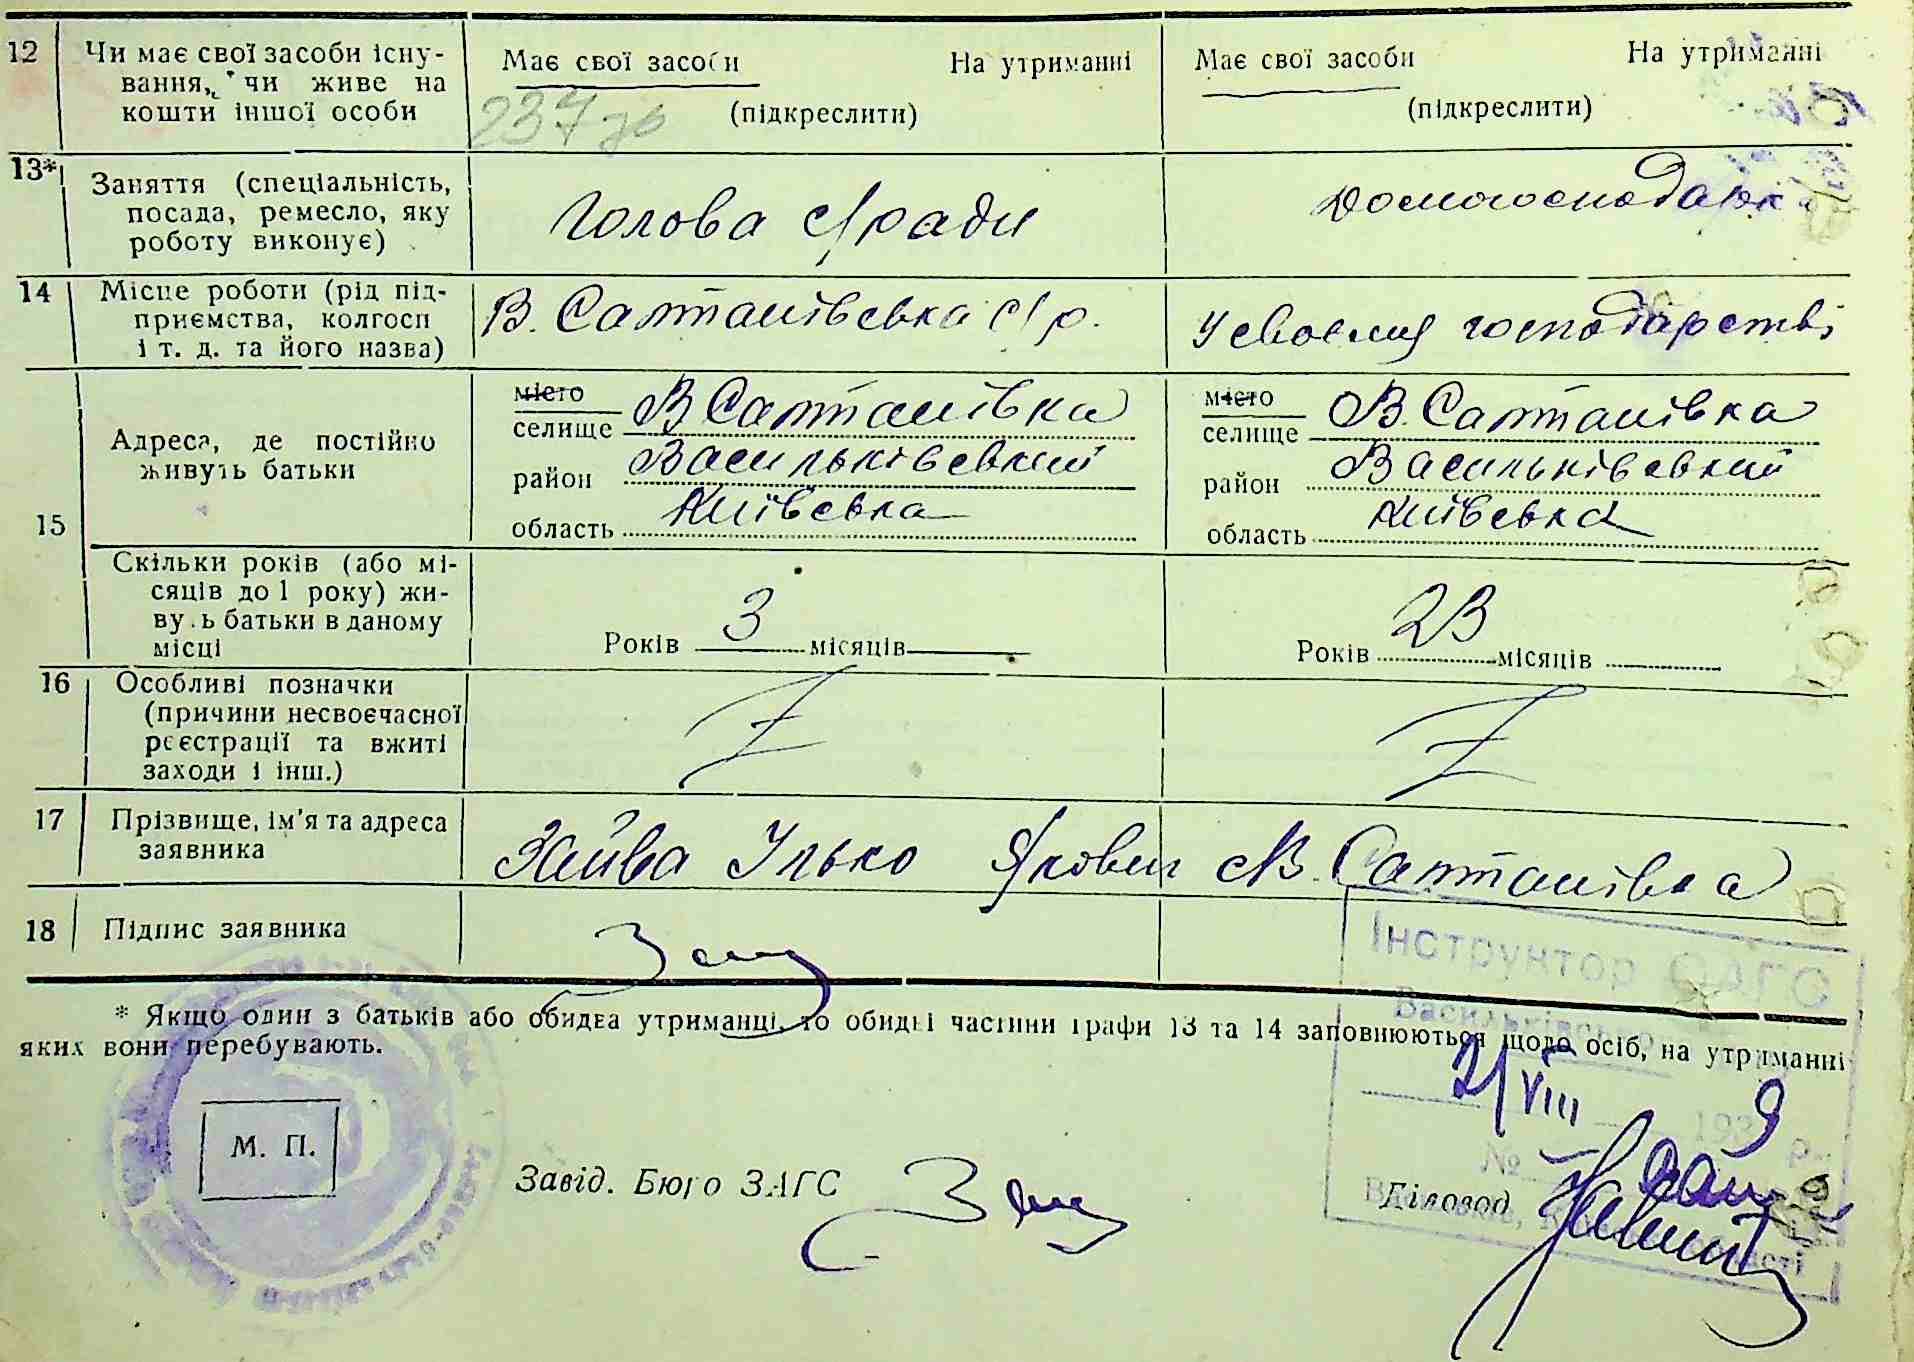 12 Чи має свої засоби існу- Має свої засоби На утриманні Має свої засоби На утриманні
вання, чи живе на
кошти іншої особи 237 (підкреслити) (підкреслити)
13* Заняття (спеціальність,
посада, ремесло, яку Голова с/ради Домогосподарк
роботу виконує)
14 Місце роботи (рід під-
приємства, колгосп В. Салтанівська с/р. У своєму господарстві
і т. д. та його назва)
15 Адреса, де постійно
живуть батьки
місто місто
селище В Салтанівка селище В. Салтанівка
район Васильківський район Васильківський
область Київська область Київська
Скільки років (або мі-
сяців до 1 року) жи-
ву ь батьки в даному
місці Років 3 місяців Років 23 місяців
16 Особливі позначки
(причини несвоєчасної
реєстрації та вжиті
заходи і інш.)
17 Прізвище, ім'я та адреса
заявника Ілько Якович с В. Салтанівка
18 Підпис заявника
Інструктор ОАГС
Васильківсько
* Якщо один з батьків або обидва утриманці, то обидві частини графи 13 та 14 заповнюються щодо осіб, на утриманні
яких вони перебувають.
2/VIII 1939 р.
№
М. П.
Завід. Бюро ЗАГС Діловод